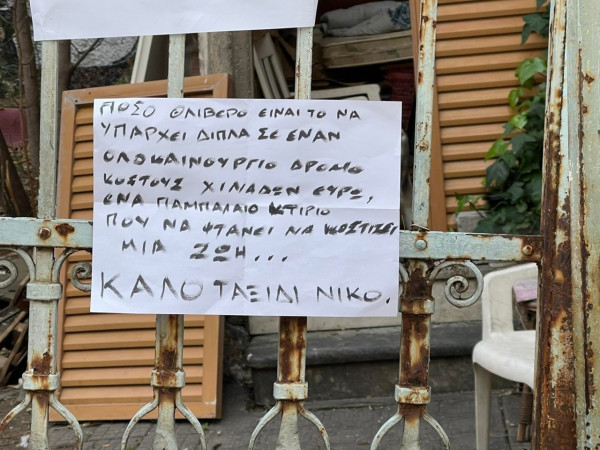 ΠΟΣΟ ΘΛΙΒΕΡΟ ΕΙΝΑΙ ΤΟ ΝΑ
ΥΠΑΡΧΕΙ ΔΙΠΛΑ ΣΕ ΕΝΑΝ
ΟΛΟΚΑΙΝΟΥΡΓΙΟ ΔΡΟΜΟ
ΚΟΣΤΟΥΣ ΧΙΛΙΑΔΩΝ ΕΥΡΩ,
ΕΝΑ ΠΑΜΠΑΛΑΙΟ ΚΤΙΡΙΟ
ΠΟΥ ΝΑ ΦΤΑΝΕΙ ΝΑ ΚΟΣΤΙΖΕΙ
ΜΙΑ ΖΩΗ...
ΚΑΛΟ ΤΑΞΙΔΙ ΝΙΚΟ.